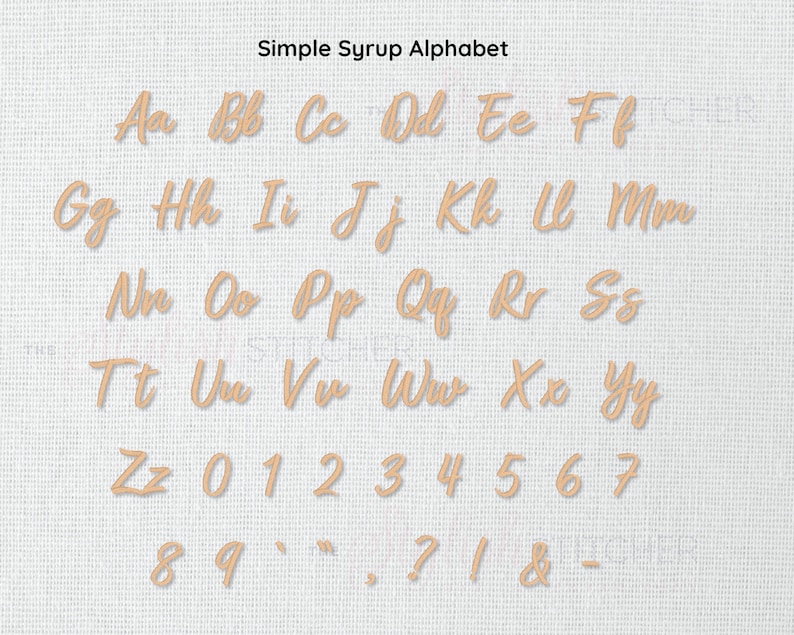 Simple Syrup Alphabet
Aa Bb Cc Dd Ee Ff
Gg Hh Ii Jj Kk Ll Mm
Nn Oo Pp Qq Rr Ss
Tt Uu Vv Ww Xx Yy
Zz 0 1 2 3 4 5 6 7
8 9 ` " , ? ! & -
THE STITCHER
THE STITCHER
THE STITCHER